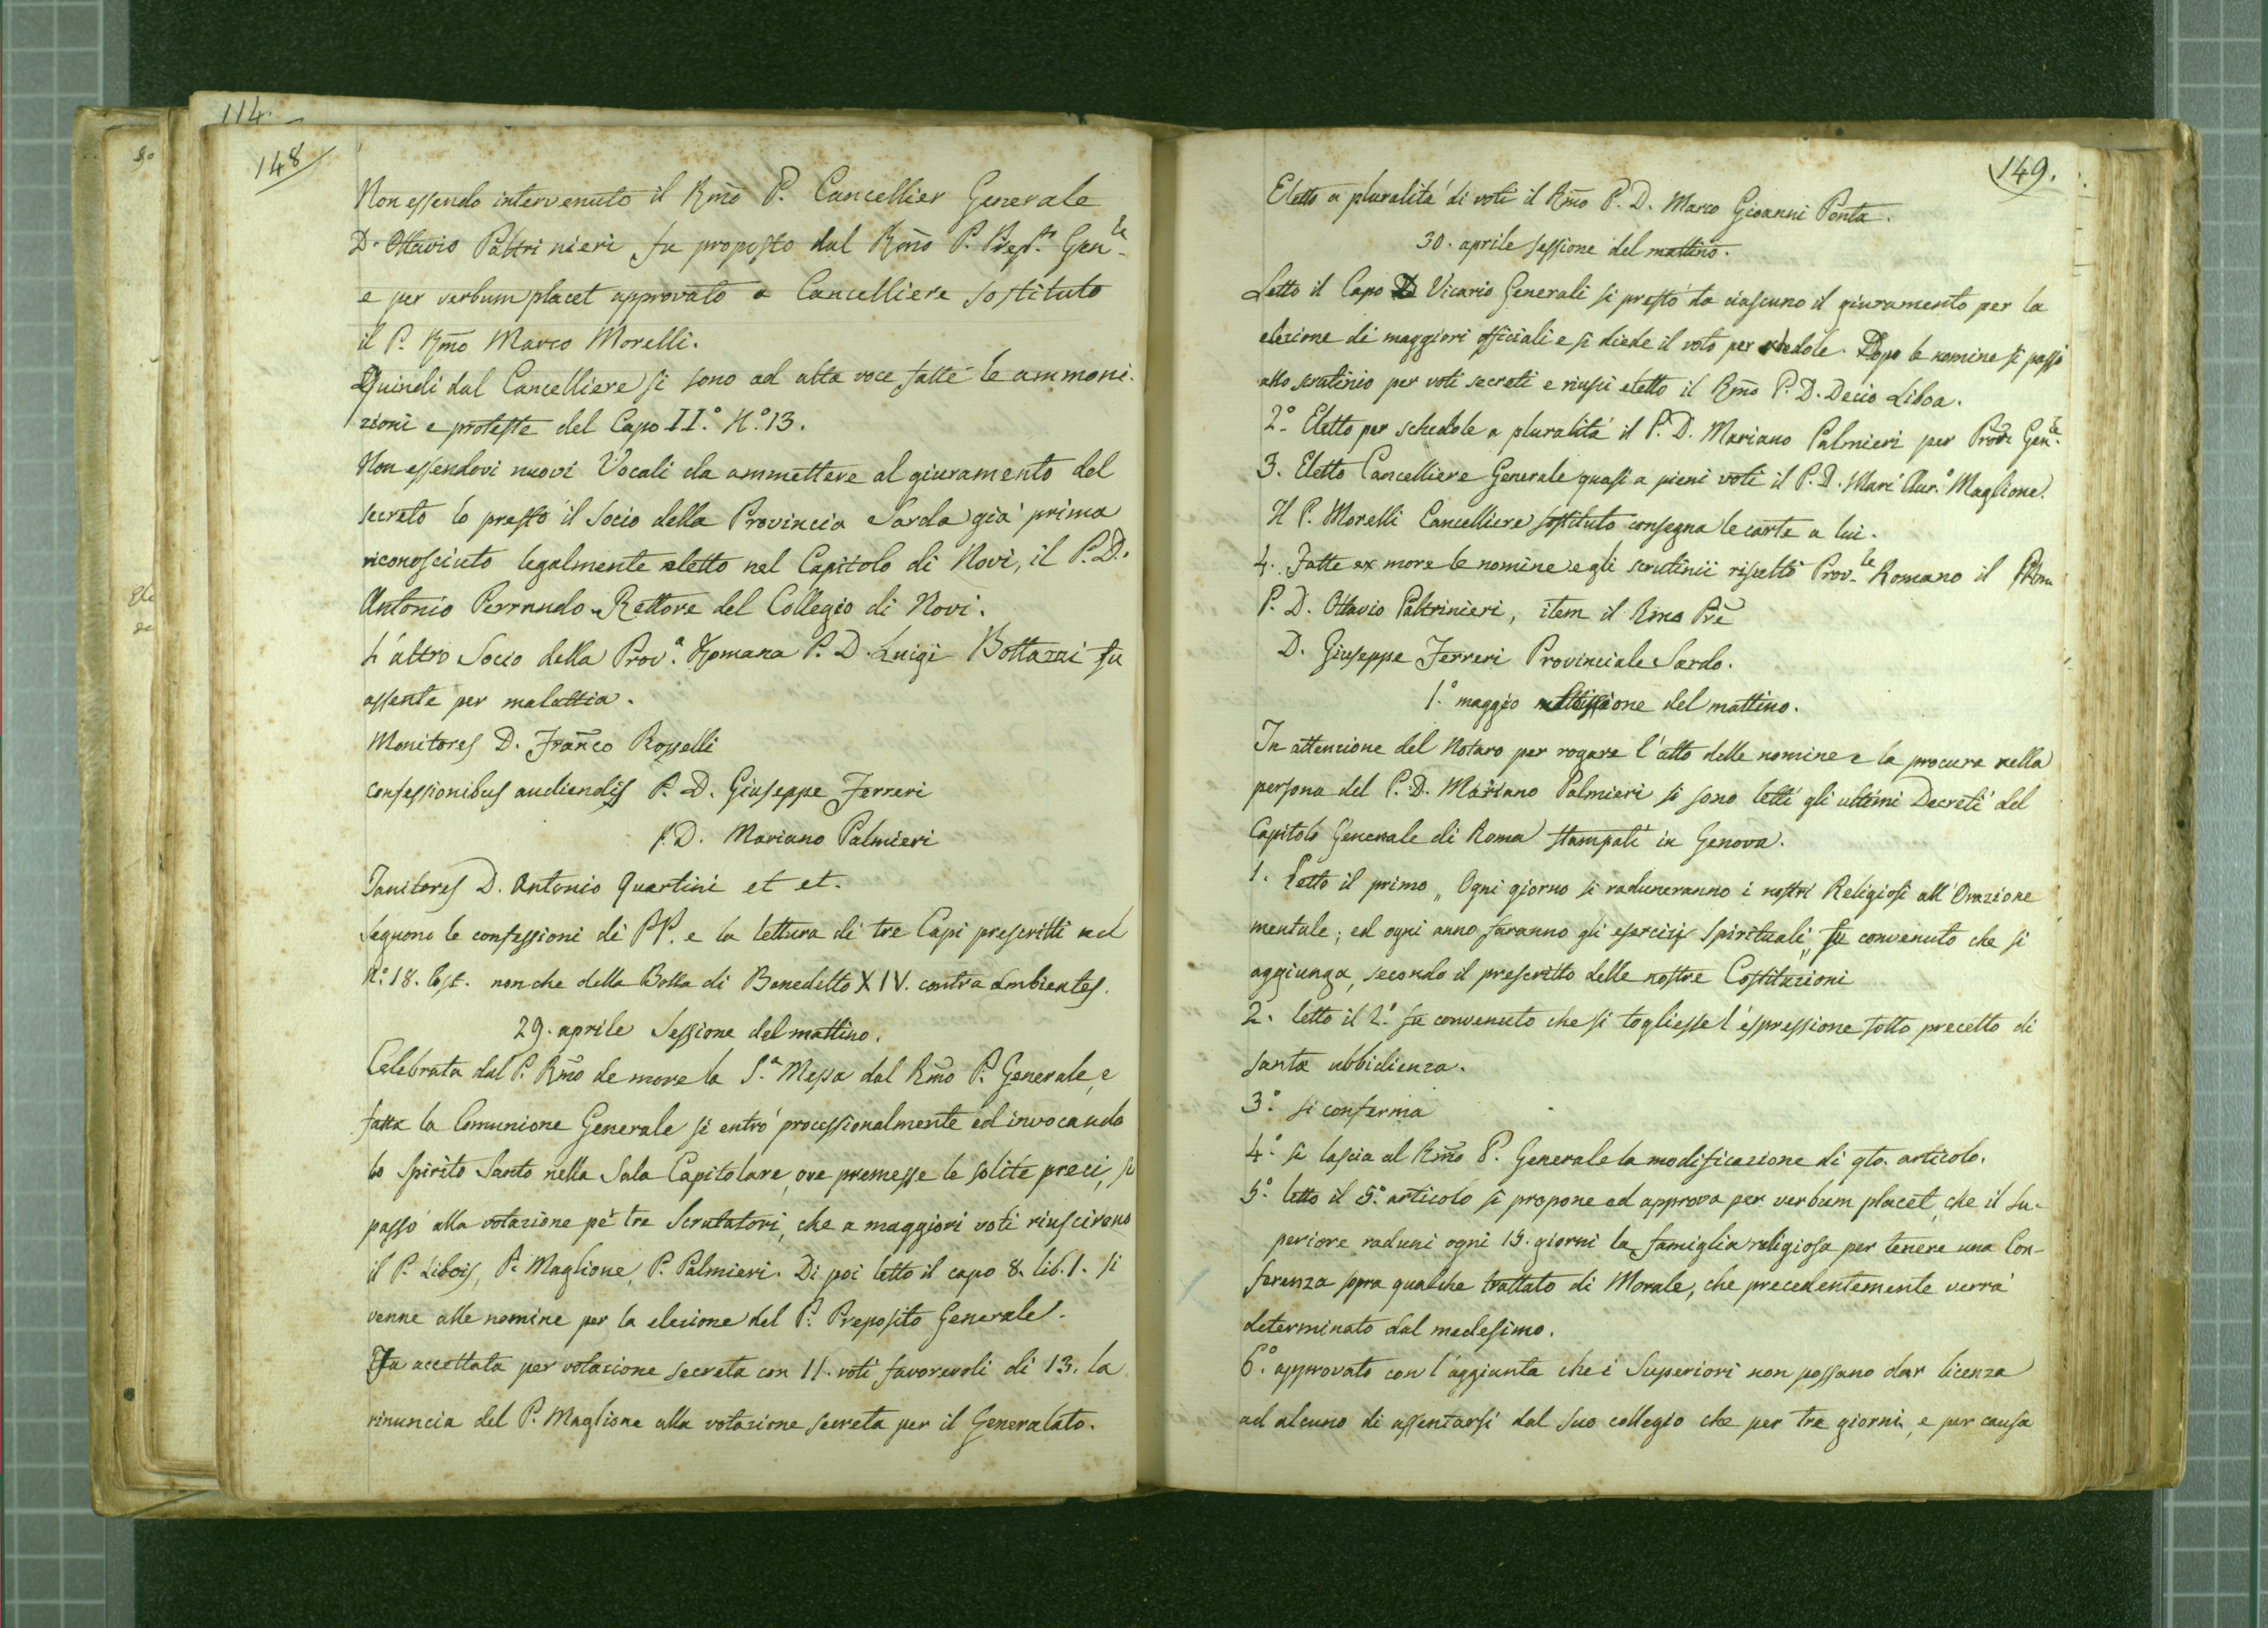 114.
148
Non essendo intervenuto il Rm̃o P. Cancellier Generale
D. Ottavio Paltrinieri fu proposto dal Rm̃o P. Prep.to Gen.le
e per verbum placet approvato a Cancelliere sostituto
il P. Rm̃o Marco Morelli.
Quindi dal Cancelliere si sono ad alta voce fatte le ammoni-
zioni e proteste del Capo II.° N.° 13.
Non essendovi nuovi Vocali da ammettere al giuramento del
secreto lo prestò il Socio della Provincia Sarda già prima
riconosciuto legalmente eletto nel Capitolo di Novi, il P. D.
Antonio Perrando Rettore del Collegio di Novi.
L'altro Socio della Prov.a Romana P. D. Luigi Bottazzi fu
assente per malattia.
Monitores D. Franco Rosselli
confessionibus audiendis P. D. Giuseppe Ferreri
P. D. Mariano Palmieri
Janitores D. Antonio Quartini et et.
Seguono le confessioni dei PP. e la lettura di tre Capi prescritti nel
N.° 18. Cost. nonche della Bolla di Benedetto XIV. contra ambientes.
29. aprile Sessione del mattino.
Celebrata dal P. Rm̃o de more la S.a Messa dal Rm̃o P. Generale, e
fatta la Comunione Generale si entrò processionalmente ed invocando
lo Spirito Santo nella Sala Capitolare, ove premesse le solite preci, si
passò alla votazione pe' tre Scrutatori, che a maggiori voti riuscirono
il P. Libois, P. Maglione, P. Palmieri. Di poi letto il capo 8. lib. 1. si
venne alle nomine per la elezione del P. Preposito Generale.
Fu accettata per votazione secreta con 11. voti favorevoli di 13. la
rinuncia del P. Maglione alla votazione secreta per il Generalato.
149.
Eletto a pluralità di voti il Rm̃o P. D. Marco Giovanni Ponta.
30. aprile sessione del mattino.
Letto il Capo Vicario Generali si prestò da ciascuno il giuramento per la
elezione dei maggiori officiali e si diede il voto per schedole. Dopo le nomine si passò
allo scrutinio per voti secreti e riuscì eletto il Rm̃o P. D. Decio Liboa.
2.° Eletto per schedole a pluralità il P. D. Mariano Palmieri per Proc.e Gen.le
3. Eletto Cancelliere Generale quasi a pieni voti il P. D. Marc' Aur.° Maglione.
Il P. Morelli Cancelliere sostituto consegna le carte a lui.
4. Fatte ex more le nomine e gli scrutinii risultò Prov.le Romano il Rm̃o
P. D. Ottavio Paltrinieri, item il Rmo Prẽ
D. Giuseppe Ferreri Provinciale Sardo.
1.° maggio sessione del mattino.
In attenzione del Notaro per rogare l'atto delle nomine e la procura nella
persona del P. D. Mariano Palmieri si sono letti gli ultimi Decreti del
Capitolo Generale di Roma stampati in Genova.
1. Letto il primo „ Ogni giorno si raduneranno i nostri Religiosi all'Orazione
mentale; ed ogni anno faranno gli esercizj Spirituali „ fu convenuto che si
aggiunga, secondo il prescritto delle nostre Costituzioni
2. letto il 2.° fu convenuto che si togliesse l'espressione sotto precetto di
santa ubbidienza.
3.° si conferma
4.° si lascia al Rm̃o P. Generale la modificazione di qto. articolo.
5.° letto il 5.° articolo si propone ed approva per verbum placet, che il Su-
periore raduni ogni 15. giorni la famiglia religiosa per tenere una Con-
ferenza sopra qualche trattato di Morale, che precedentemente verrà
determinato dal medesimo.
6.° approvato con l'aggiunta che i Superiori non possano dar licenza
ad alcuno di assentarsi dal suo collegio che per tre giorni, e per causa